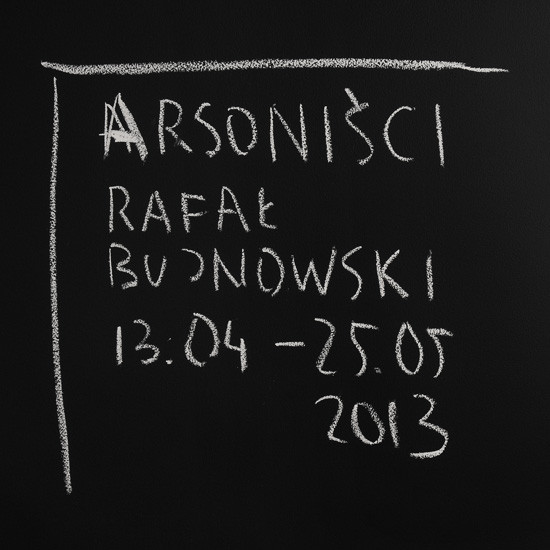 ARSONIŚCI
RAFAŁ
BUJNOWSKI
13.04 – 25.05
2013